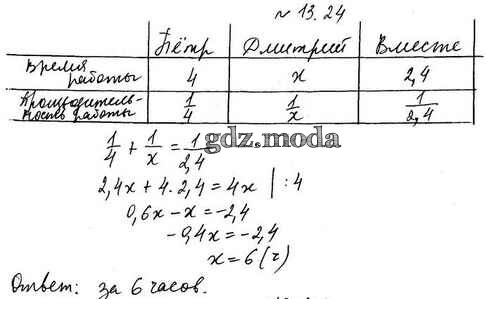 № 13.24
Пётр Дмитрий Вместе
Время работы 4 x 2,4
Производитель-ность работы 1/4 1/x 1/2,4
1/4 + 1/x = 1/2,4
gdz.moda
2,4x + 4·2,4 = 4x | :4
0,6x - x = -2,4
-0,4x = -2,4
x = 6 (ч)
Ответ: за 6 часов.